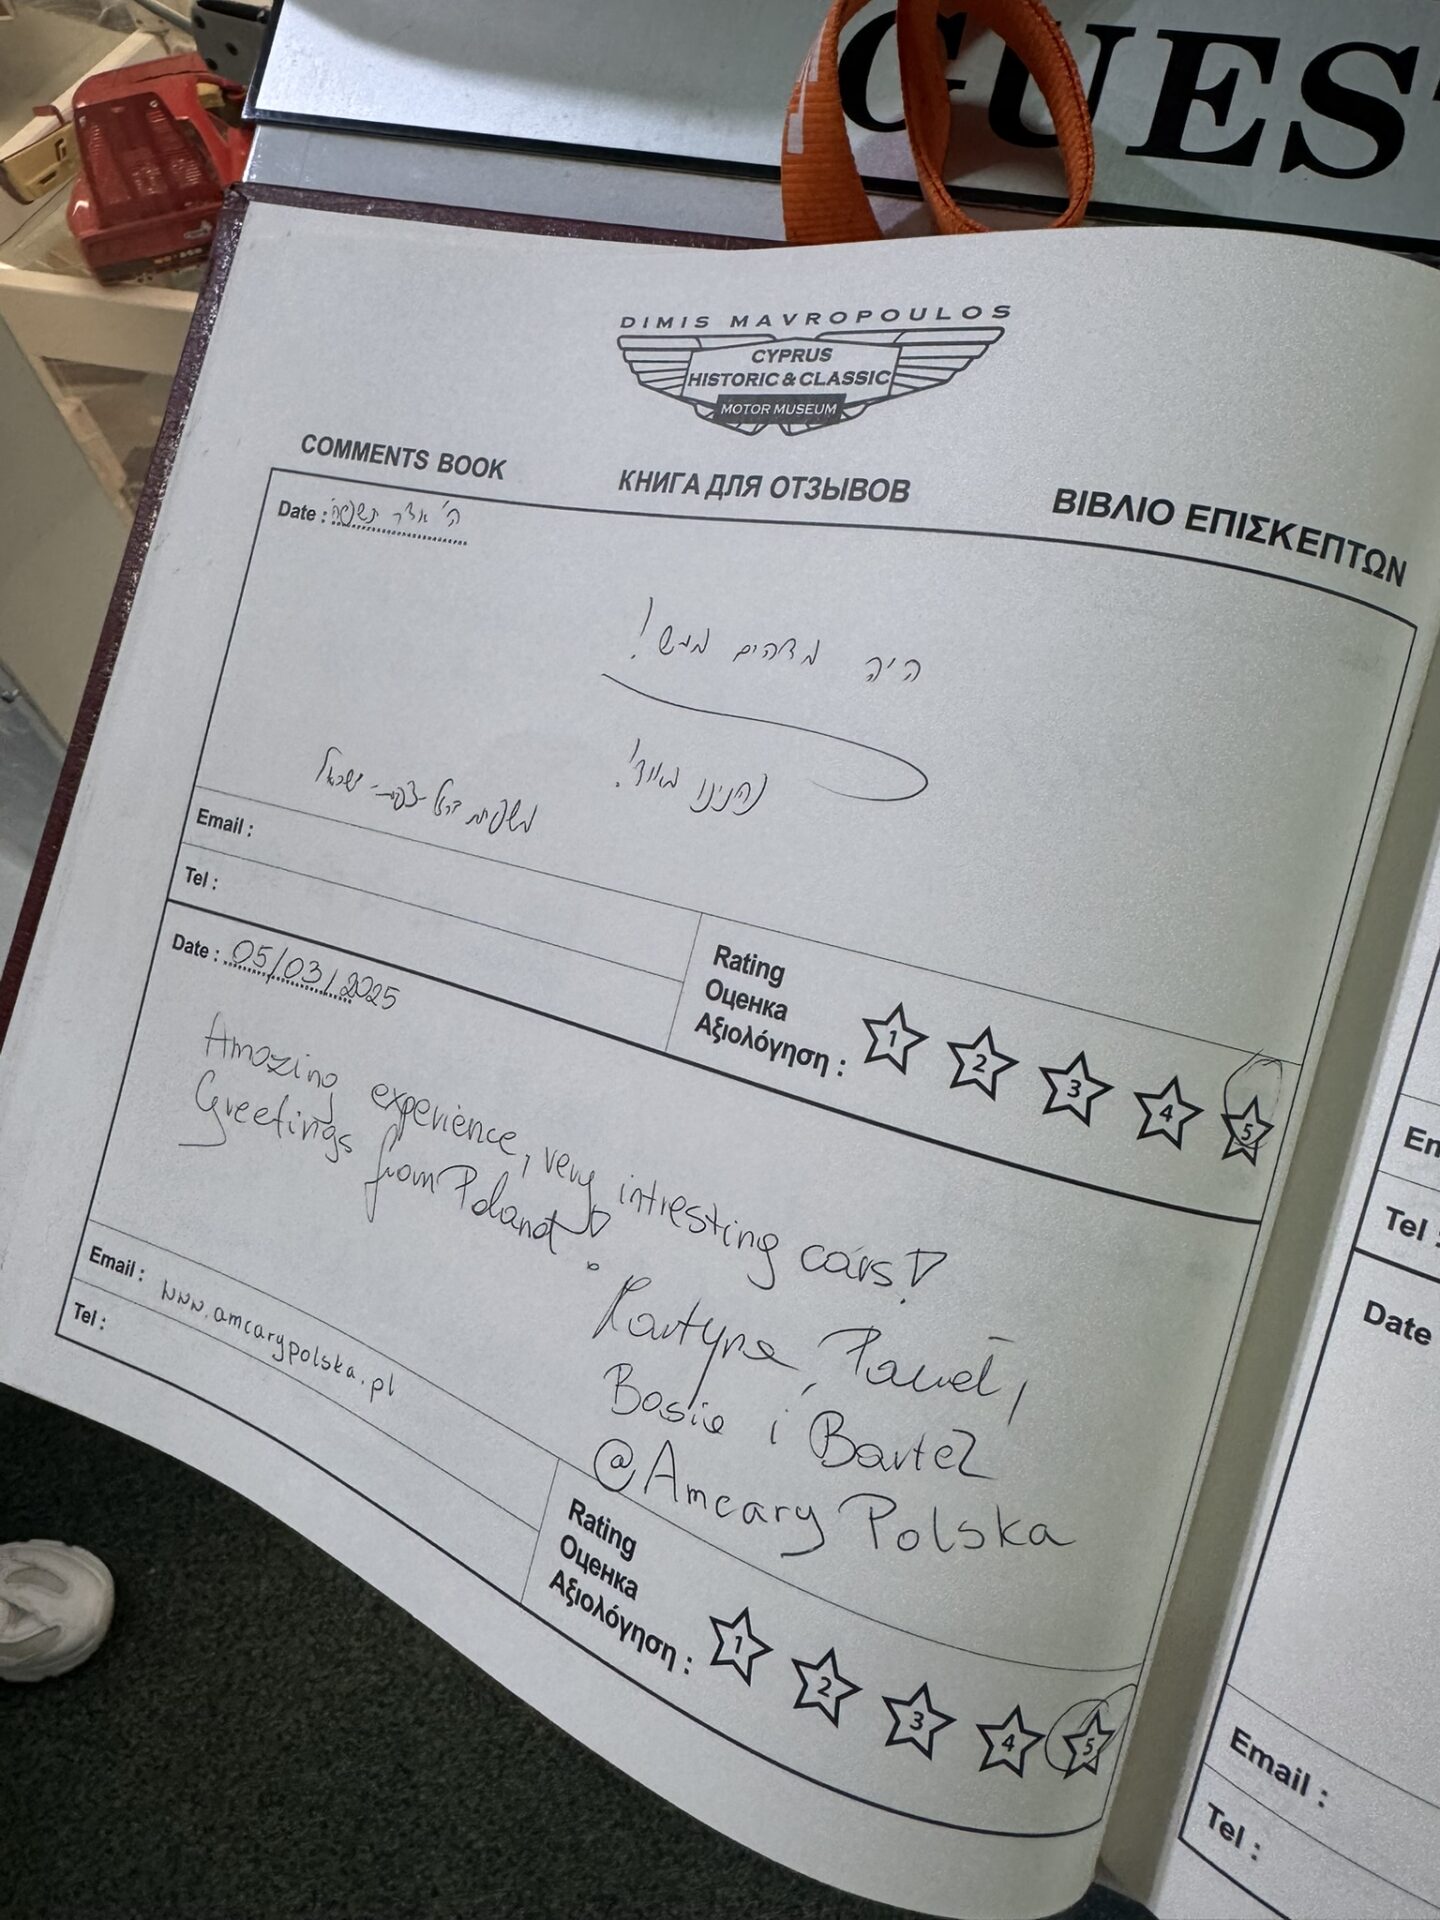 GUEST
DIMIS MAVROPOULOS
CYPRUS
HISTORIC & CLASSIC
MOTOR MUSEUM
COMMENTS BOOK
КНИГА ДЛЯ ОТЗЫВОВ
ΒΙΒΛΙΟ ΕΠΙΣΚΕΠΤΩΝ
Date : ה' אדר תשפ"ה
היה מדהים ממש!
נהנינו מאוד!
משפחת ישראל
Email :
Tel :
Rating
Оценка
Αξιολόγηση :
1 2 3 4 5
Date : 05/03/2025
Amazing experience, very intresting cars!
Greetings from Poland!
Martyna, Paweł,
Basia i Bartek
@Amcary Polska
Email : www.amcarypolska.pl
Tel :
Rating
Оценка
Αξιολόγηση :
1 2 3 4 5
Tel :
Date
Email :
Tel :